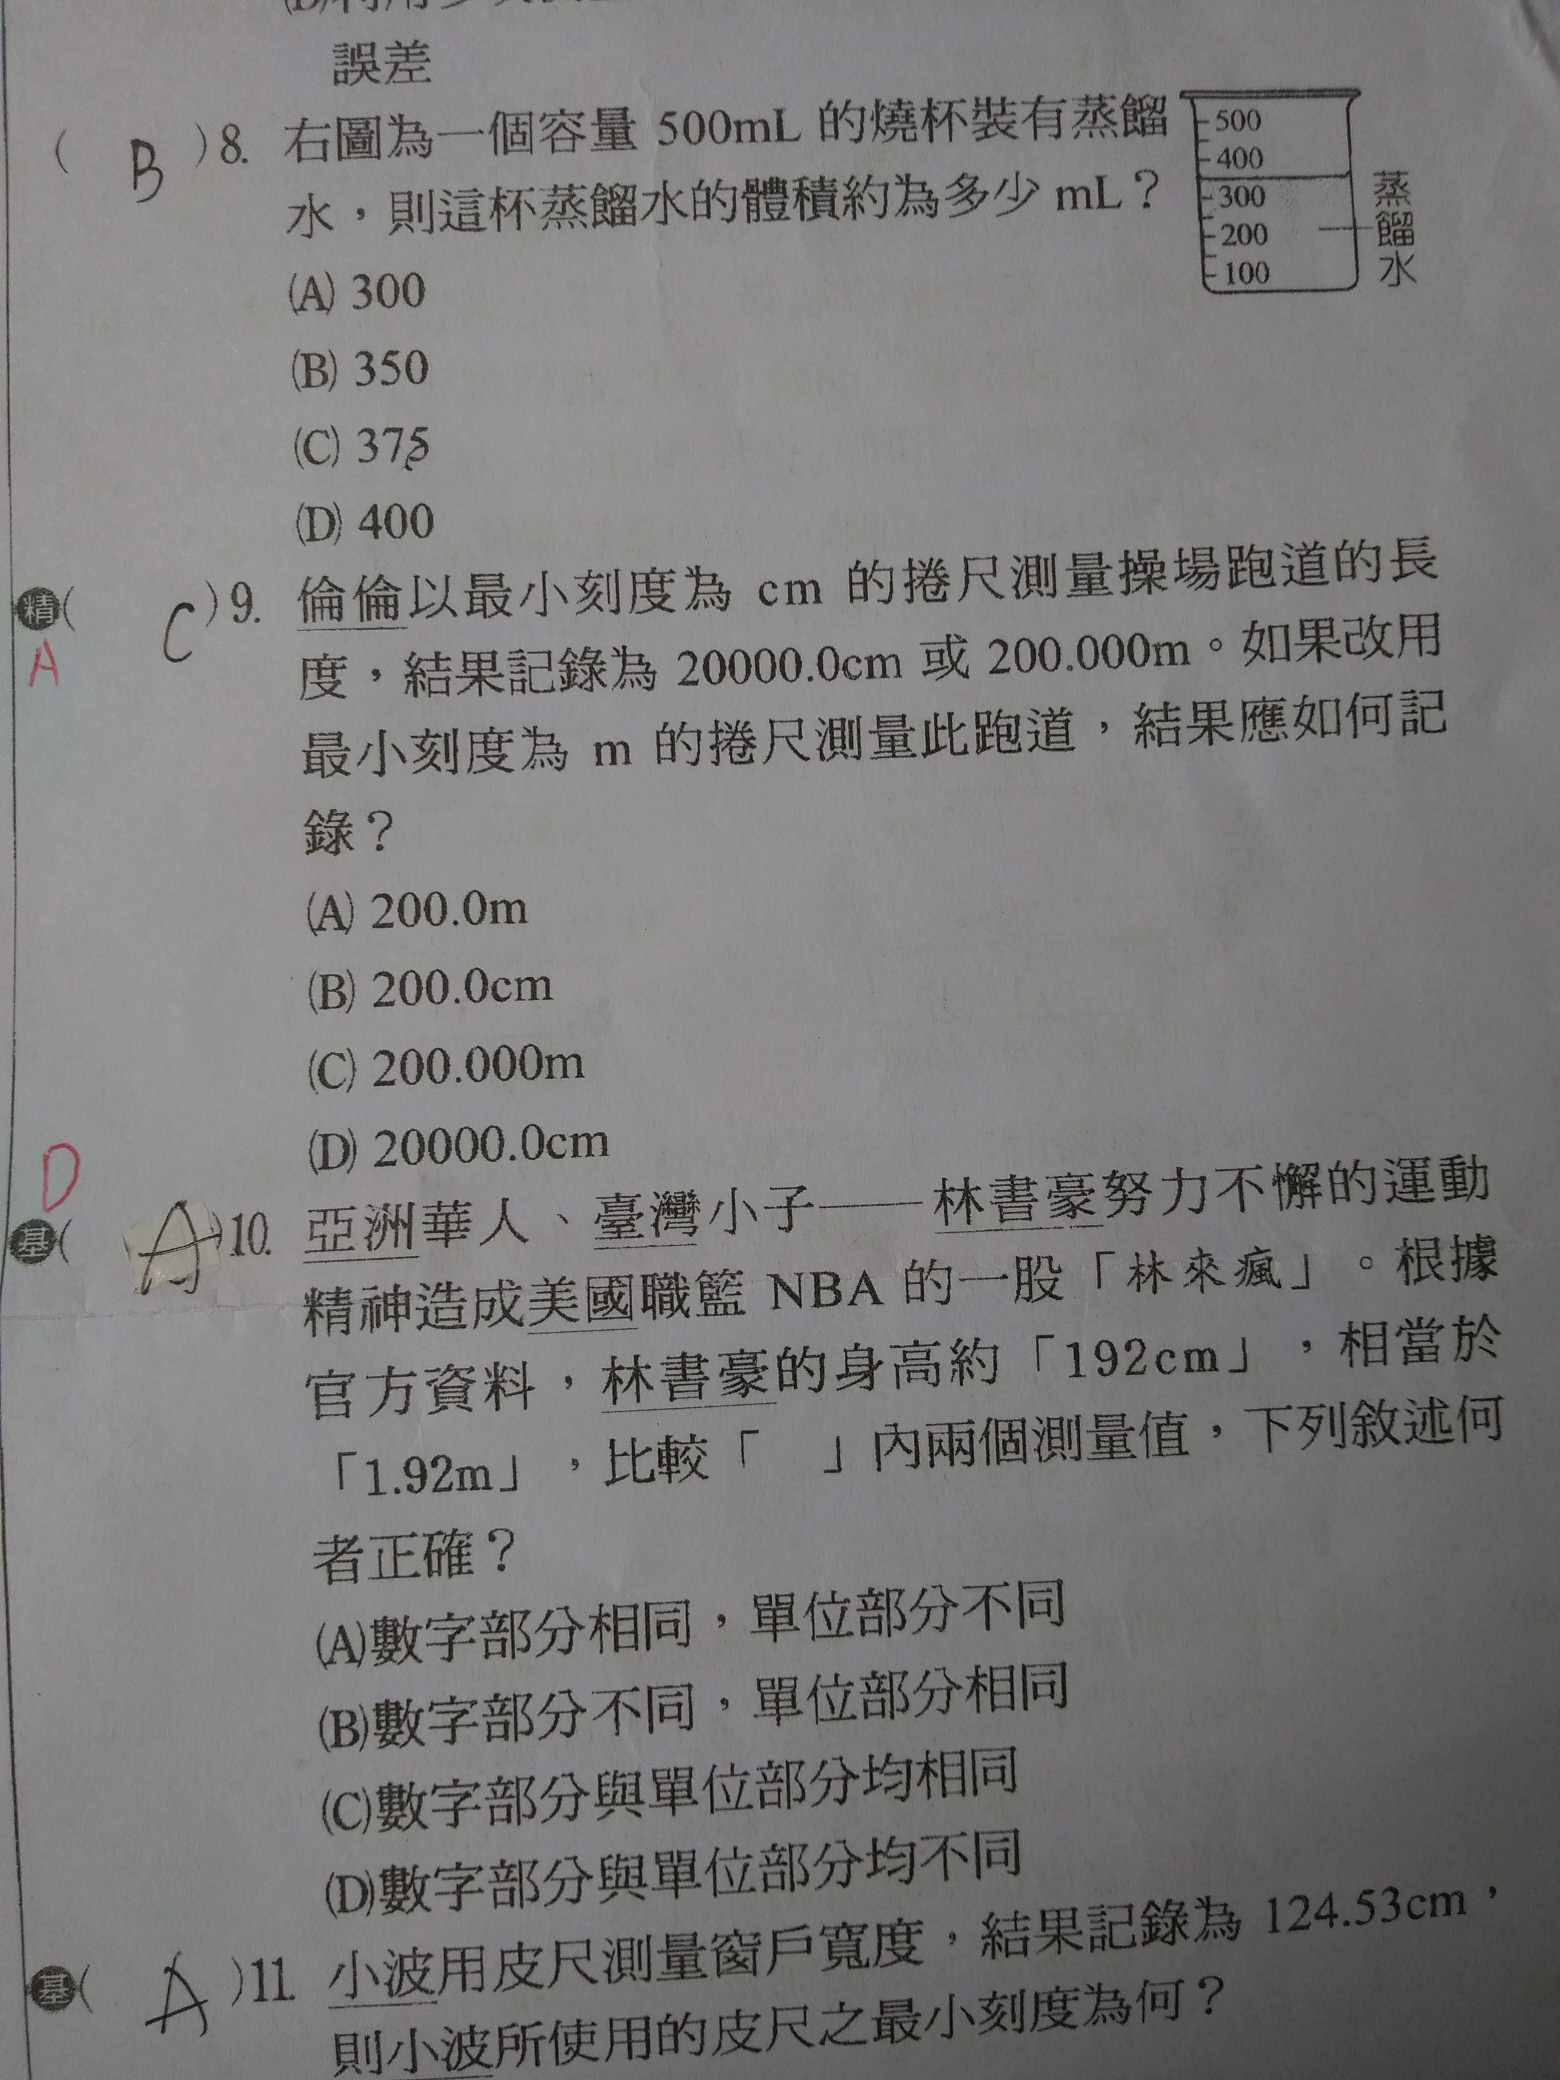 誤差
( B )8. 右圖為一個容量 500mL 的燒杯裝有蒸餾
水，則這杯蒸餾水的體積約為多少 mL？
500
400
300
200
100
蒸餾水
(A) 300
(B) 350
(C) 375
(D) 400
精( C )9. 倫倫以最小刻度為 cm 的捲尺測量操場跑道的長
A
度，結果記錄為 20000.0cm 或 200.000m。如果改用
最小刻度為 m 的捲尺測量此跑道，結果應如何記
錄？
(A) 200.0m
(B) 200.0cm
(C) 200.000m
(D) 20000.0cm
D
基( A )10. 亞洲華人、臺灣小子——林書豪努力不懈的運動
精神造成美國職籃 NBA 的一股「林來瘋」。根據
官方資料，林書豪的身高約「192cm」，相當於
「1.92m」，比較「　」內兩個測量值，下列敘述何
者正確？
(A)數字部分相同，單位部分不同
(B)數字部分不同，單位部分相同
(C)數字部分與單位部分均相同
(D)數字部分與單位部分均不同
基( A )11. 小波用皮尺測量窗戶寬度，結果記錄為 124.53cm，
則小波所使用的皮尺之最小刻度為何？